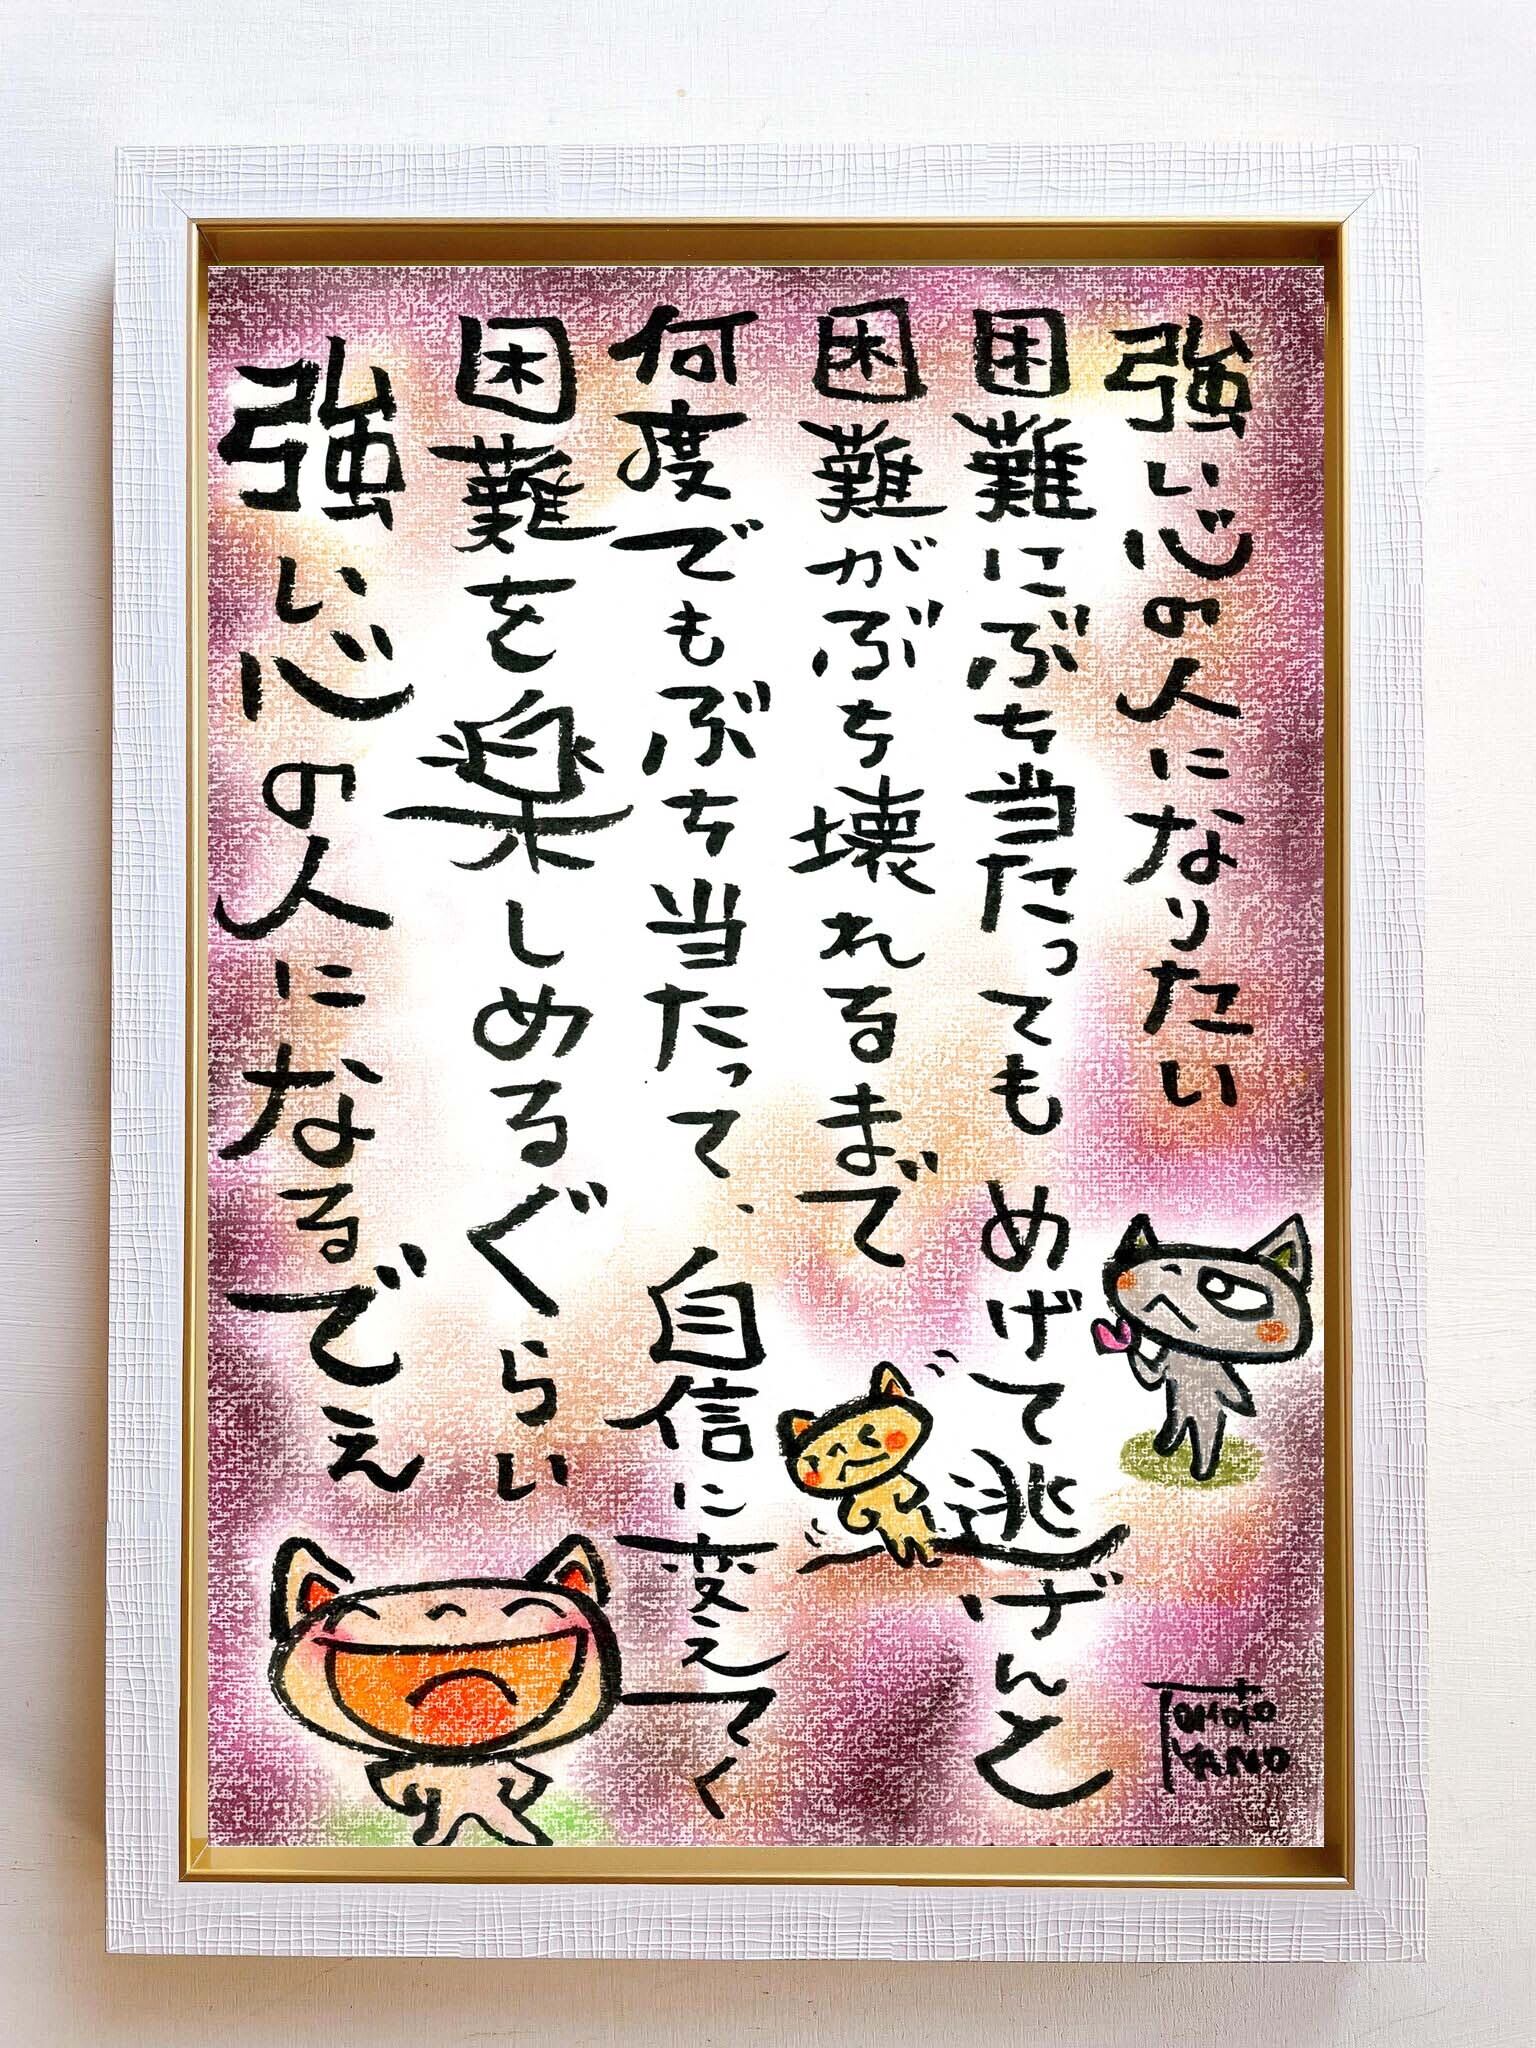 強い心の人になりたい
困難にぶち当たっても めげて逃げんと
困難がぶち壊れるまで
何度でもぶち当たって、自信に変えてく
困難を楽しめるぐらい
強い心の人になるでぇ
Tomoto
YANO